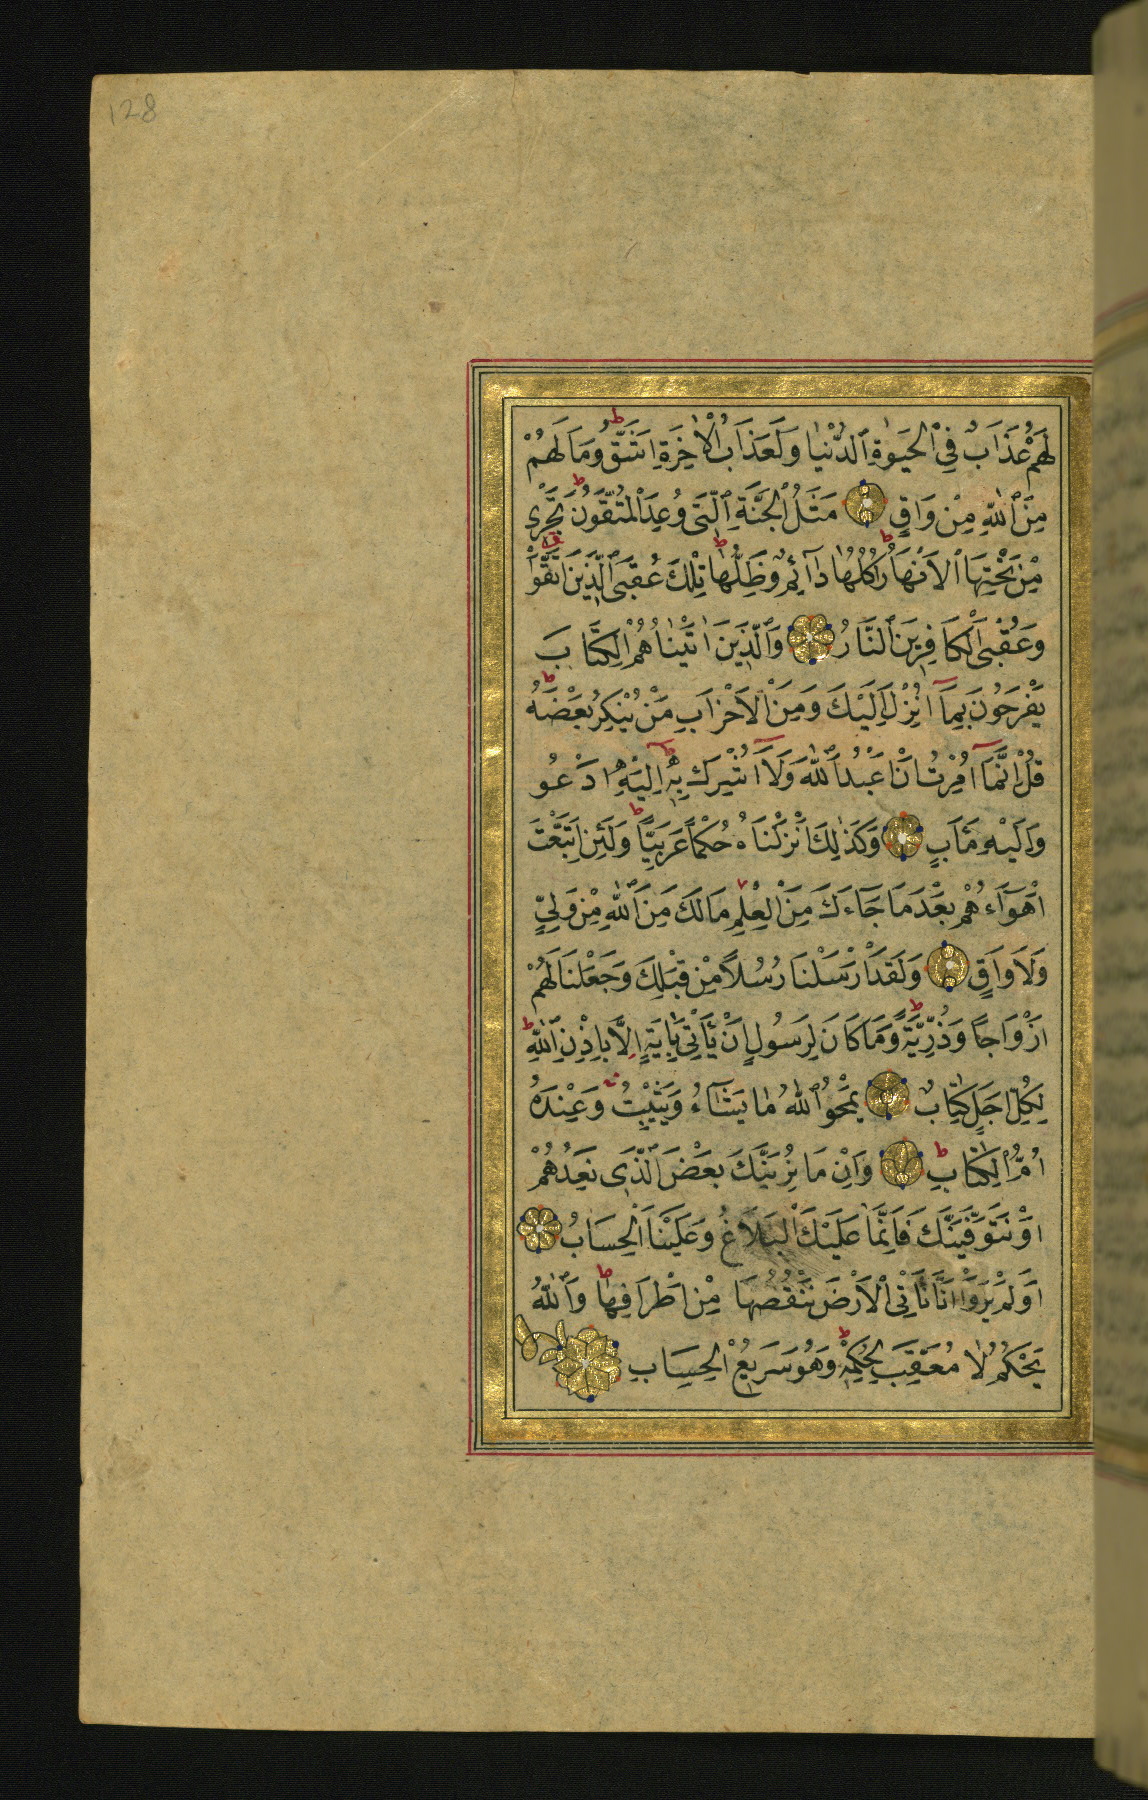 128
لَهُمْ عَذَابٌ فِي ٱلْحَيَوٰةِ ٱلدُّنْيَا وَلَعَذَابُ ٱلْاٰخِرَةِ اَشَقُّ وَمَا لَهُمْ
مِنَ ٱللّٰهِ مِنْ وَاقٍ مَثَلُ ٱلْجَنَّةِ ٱلَّتِى وُعِدَ ٱلْمُتَّقُونَ تَجْرِى
مِنْ تَحْتِهَا ٱلْاَنْهَارُ اُكُلُهَا دَآئِمٌ وَظِلُّهَا تِلْكَ عُقْبَى ٱلَّذِينَ اتَّقَوْا
وَعُقْبَى ٱلْكَافِرِينَ ٱلنَّارُ وَٱلَّذِينَ اٰتَيْنَاهُمُ ٱلْكِتَابَ
يَفْرَحُونَ بِمَآ اُنْزِلَ اِلَيْكَ وَمِنَ ٱلْاَحْزَابِ مَنْ يُنْكِرُ بَعْضَهُ
قُلْ اِنَّمَآ اُمِرْتُ اَنْ اَعْبُدَ ٱللّٰهَ وَلَآ اُشْرِكَ بِهِ اِلَيْهِ اَدْعُو
وَاِلَيْهِ مَاٰبِ وَكَذٰلِكَ اَنْزَلْنَاهُ حُكْمًا عَرَبِيًّا وَلَئِنِ اتَّبَعْتَ
اَهْوَآءَهُمْ بَعْدَ مَا جَآءَكَ مِنَ ٱلْعِلْمِ مَا لَكَ مِنَ ٱللّٰهِ مِنْ وَلِىٍّ
وَلَا وَاقٍ وَلَقَدْ اَرْسَلْنَا رُسُلًا مِنْ قَبْلِكَ وَجَعَلْنَا لَهُمْ
اَزْوَاجًا وَذُرِّيَّةً وَمَا كَانَ لِرَسُولٍ اَنْ يَأْتِىَ بِاٰيَةٍ اِلَّا بِاِذْنِ ٱللّٰهِ
لِكُلِّ اَجَلٍ كِتَابٌ يَمْحُو ٱللّٰهُ مَا يَشَآءُ وَيُثْبِتُ وَعِنْدَهُ
اُمُّ ٱلْكِتَابِ وَاِنْ مَا نُرِيَنَّكَ بَعْضَ ٱلَّذِى نَعِدُهُمْ
اَوْ نَتَوَفَّيَنَّكَ فَاِنَّمَا عَلَيْكَ ٱلْبَلَاغُ وَعَلَيْنَا ٱلْحِسَابُ
اَوَلَمْ يَرَوْا اَنَّا نَأْتِى ٱلْاَرْضَ نَنْقُصُهَا مِنْ اَطْرَافِهَا وَٱللّٰهُ
يَحْكُمُ لَا مُعَقِّبَ لِحُكْمِهِ وَهُوَ سَرِيعُ ٱلْحِسَابِ